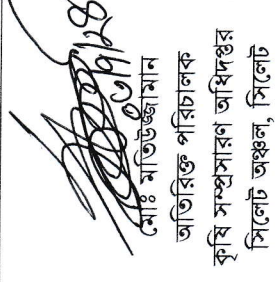 মোঃ মতিউজ্জামান
অতিরিক্ত পরিচালক
কৃষি সম্প্রসারণ অধিদপ্তর
সিলেট অঞ্চল, সিলেট